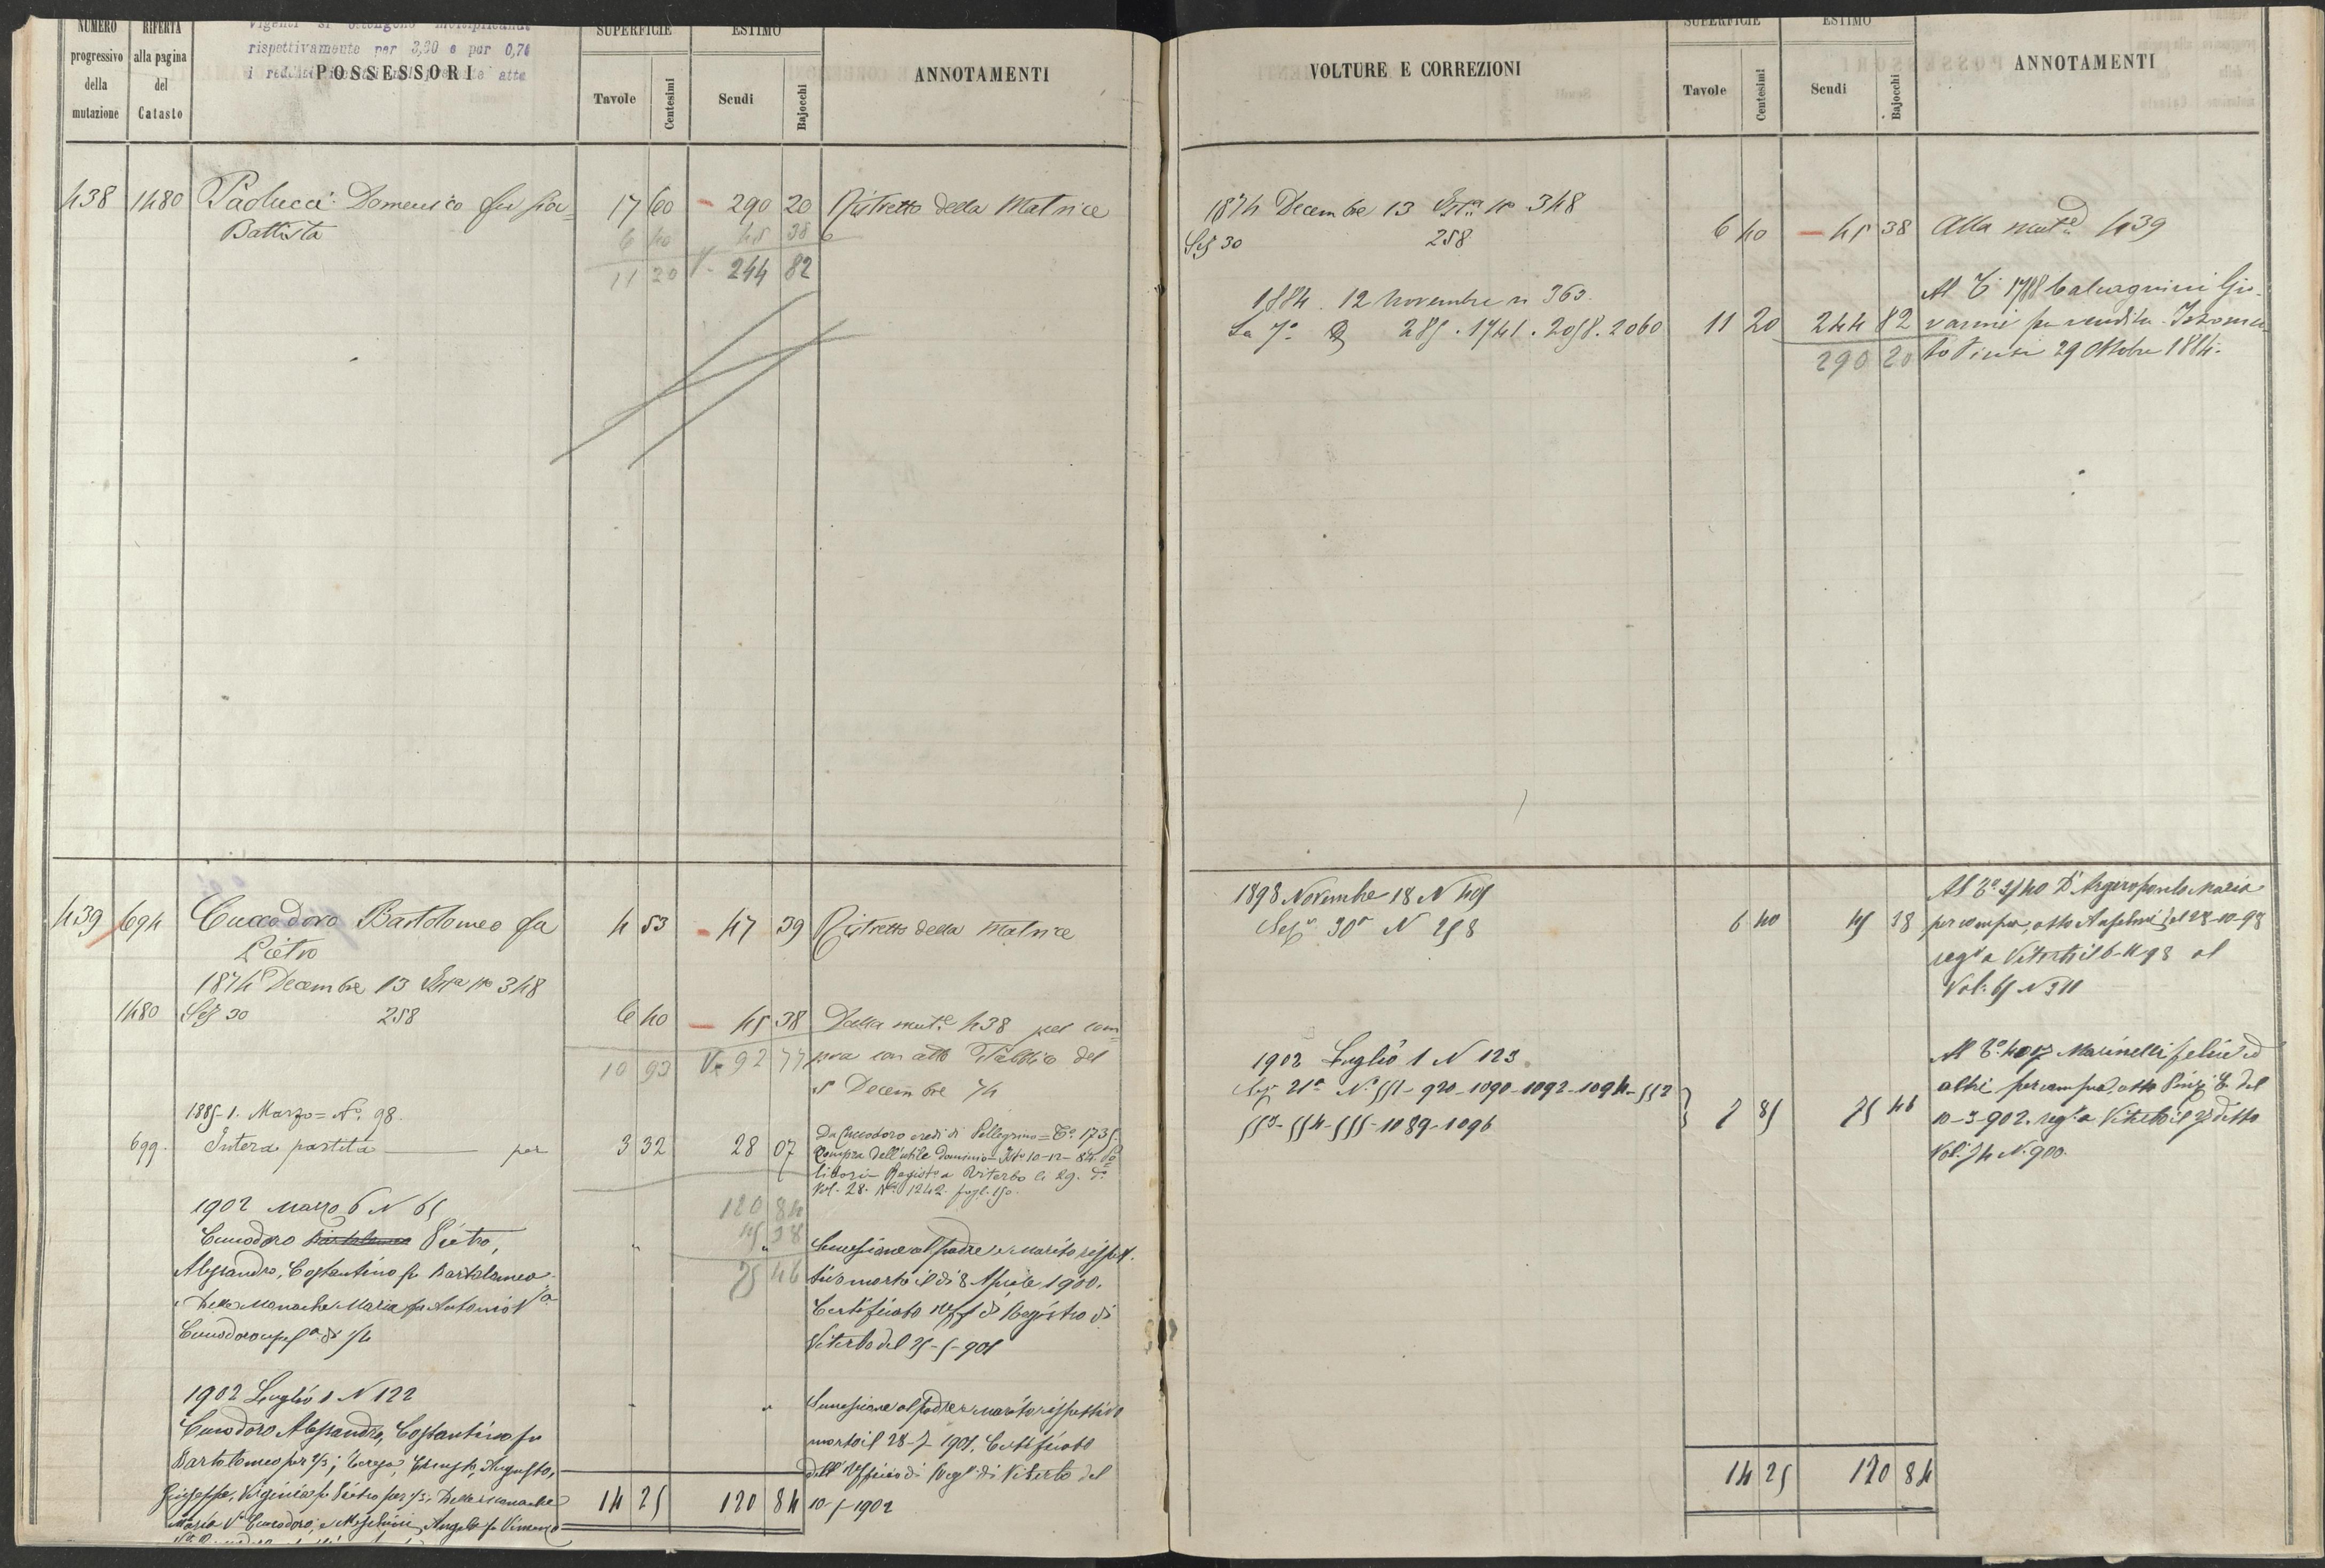 NUMERO progressivo della mutazione
RIFERTA alla pagina del Catasto
vigenti si ottengono moltiplicando
rispettivamente per 3,30 e per 0,74
POSSESSORI
SUPERFICIE
Tavole Centesimi
ESTIMO
Scudi Bajocchi
ANNOTAMENTI
438 1480 Paolucci Domenico fu Gio= 17 60 290 20 Ristretto della Matrice
Battista 6 40 45 38
11 20 244 82
439 694 Cuccodoro Bartolomeo fu 4 53 47 39 Ristretto della Matrice
Pietro
1874 Decembre 13 No 348
1480 Sez 30 258 6 40 45 38 Dalla mut.e 438 per com=
10 93 92 77 pra con atto Pubblico del
5 Decembre 74
1885-1. Marzo= No. 98.
699. Intera partita per 3 32 28 07 Da Cuccodoro eredi di Pellegrino= To. 1735.
Compra dell'utile dominio 10-12-84.
Registo a Viterbo li 29. do
Vol. 28. No 1242. fogl. 150.
1902 Marzo 6 N 65 120 84
Cuccodoro Bartolomeo Pietro, 45 38
Alessandro, Costantino fu Bartolomeo 75 46
Successione al padre e marito rispet.
tivo morto il dì 8 Aprile 1900.
e Delle Monache Maria fu Antonio Va
Certificato Uff di Registro di
Cuccodoro di 1/4
Viterbo del 25-5-901
1902 Luglio 1 N 122
Successione al padre e marito rispettivo
Cuccodoro Alessandro, Costantino fu
morto il 28-7-1901. Certificato
Bartolomeo per 2/3; Teresa, Ernesto, Augusto,
dell'Ufficio di Reg. di Viterbo del
Giuseppe, Virginia fu Pietro per 1/3; Delle Monache 14 25 120 84 10-5-1902
Maria Va Cuccodoro, e Angela fu Vincenzo
VOLTURE E CORREZIONI
SUPERFICIE
Tavole Centesimi
ESTIMO
Scudi Bajocchi
ANNOTAMENTI
1874 Decembre 13 No 348
Sez 30 258 6 40 45 38 Alla mut.e 439
1884. 12 Novembre n 363.
Al To 1788 Calcagnini Gio-
285. 1741. 2058. 2060 11 20 244 82 vanni per vendita
290 20 29 Ottobre 1884.
1898 Novembre 18 N 405
Sez. 30a N 258 6 40 45 38
Al To 3540 D'Argeroponto Maria
per compra, atto Anselmi del 28-10-98
reg.o a Viterbo il 6-11-98 al
Vol. 65 N 311
1902 Luglio 1 N 123
Sez. 21a N. 551-920-1090-1092-1094-552
553-554-555-1089-1096 7 85 75 46
Al To. 4017 Marinelli Felice ed
altri per compra, atto Pinzi E. del
10-3-902. reg.o a Viterbo il detto
Vol. 74 N. 900.
14 25 120 84